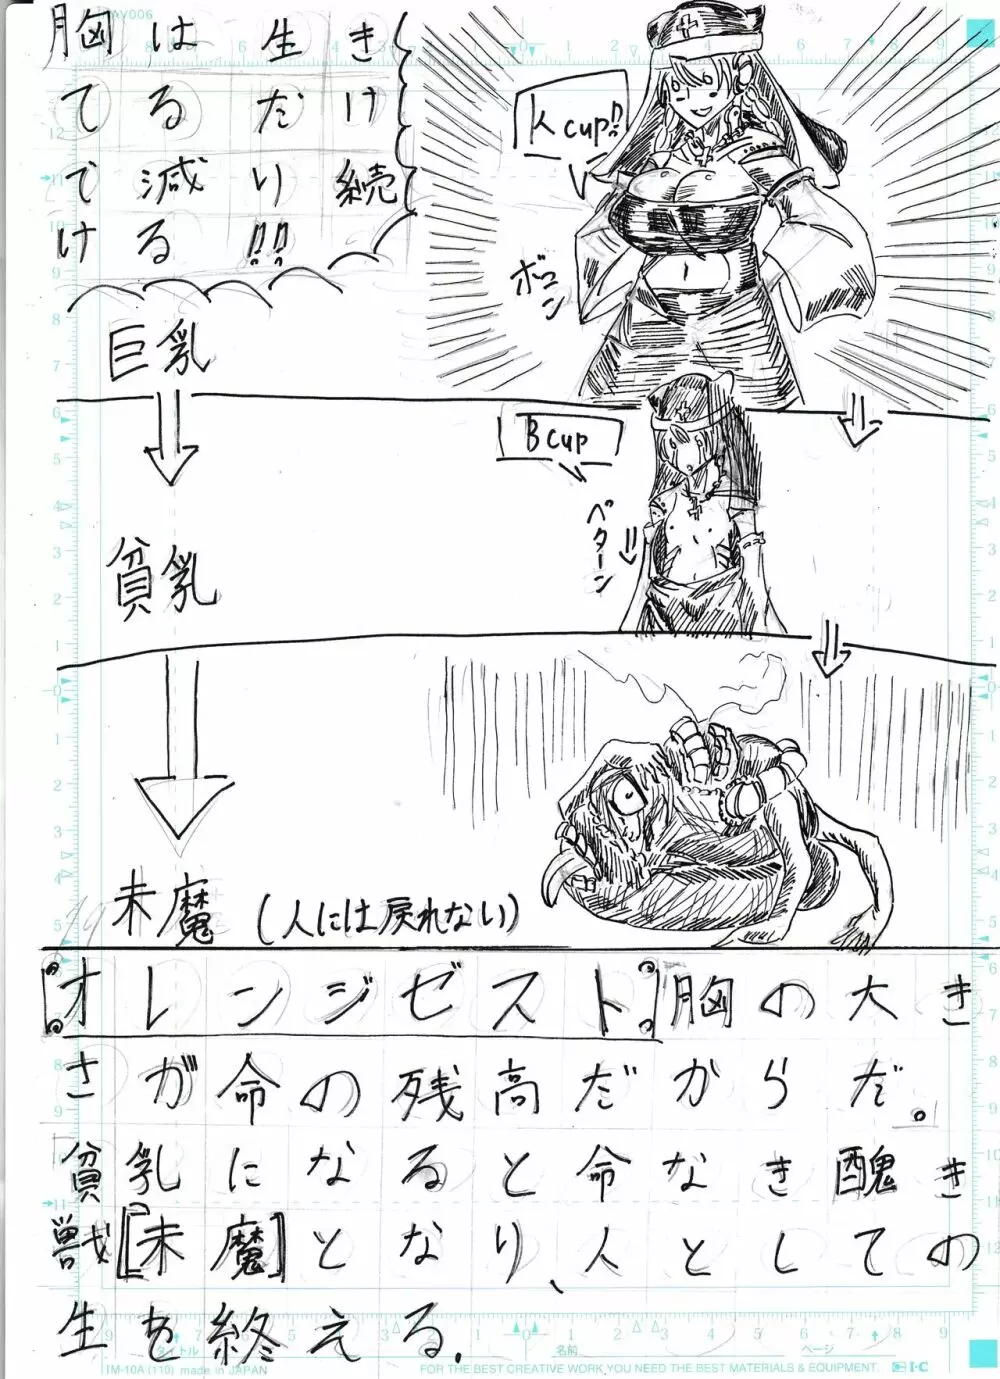 AV006
胸は生き
てるだけ
で減り続
ける!!
K cup!!
ボヨン
巨乳
B cup
ペターン
貧乳
未魔 (人には戻れない)
オレンジゼスト。胸の大き
さが命の残高だからだ。
貧乳になると命なき醜き
獣[未魔]となり、人としての
生を終える.
タイトル
名前
ページ
IM-10A (110) made in JAPAN
FOR THE BEST CREATIVE WORK, YOU NEED THE BEST MATERIALS & EQUIPMENT.
I・C